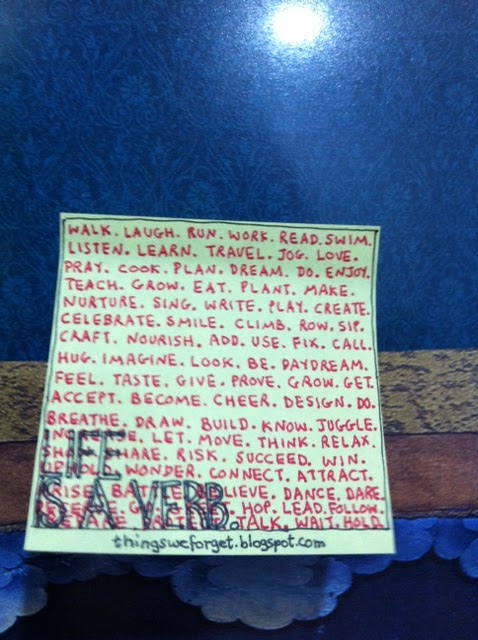 WALK. LAUGH. RUN. WORK. READ. SWIM.
LISTEN. LEARN. TRAVEL. JOG. LOVE.
PRAY. COOK. PLAN. DREAM. DO. ENJOY.
TEACH. GROW. EAT. PLANT. MAKE.
NURTURE. SING. WRITE. PLAY. CREATE.
CELEBRATE. SMILE. CLIMB. ROW. SIP.
CRAFT. NOURISH. ADD. USE. FIX. CALL.
HUG. IMAGINE. LOOK. BE. DAYDREAM.
FEEL. TASTE. GIVE. PROVE. GROW. GET.
ACCEPT. BECOME. CHEER. DESIGN. DO.
BREATHE. DRAW. BUILD. KNOW. JUGGLE.
LET. MOVE. THINK. RELAX.
SHARE. RISK. SUCCEED. WIN.
UPHOLD. WONDER. CONNECT. ATTRACT.
DANCE. DARE.
HOP. LEAD. FOLLOW.
TALK. WAIT. HOLD.
LIFE
IS A VERB.
thingsweforget.blogspot.com